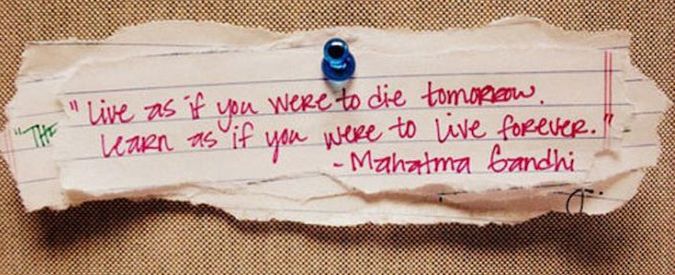 "Live as if you were to die tomorrow.
"THE
Learn as if you were to live forever."
- Mahatma Gandhi